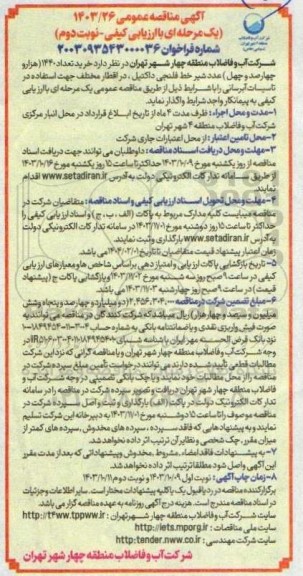 آگهی مناقصه عمومی ۱۴۰۳/۲۶
(یک مرحله‌ای با ارزیابی کیفی - نوبت دوم)
شماره فراخوان ۲۰۰۳۰۹۳۵۴۳۰۰۰۰۳۶
شرکت آب و فاضلاب منطقه چهار شهر تهران در نظر دارد خرید تعداد ۱۴۴۰ (هزار و
چهارصد و چهل) عدد شیر خط فلنجی داکتیل، در اقطار مختلف جهت استفاده در
تاسیسات آبرسانی را با شرایط ذیل از طریق مناقصه عمومی یک مرحله‌ای با ارزیابی
کیفی به پیمانکار واجد شرایط واگذار نماید.
۱- مدت و محل اجرا: ظرف مدت ۴ ماه از تاریخ ابلاغ قرارداد در محل انبار مرکزی
شرکت آب و فاضلاب منطقه ۴ شهر تهران
۲- محل تامین اعتبار: از محل اعتبارات جاری شرکت
۳- مهلت و محل دریافت اسناد مناقصه: داوطلبان می توانند جهت دریافت اسناد
مناقصه از روز یکشنبه مورخ ۱۴۰۳/۱۰/۰۹ حداکثر تا ساعت ۱۵ روز یکشنبه مورخ ۱۴۰۳/۱۰/۱۶
از طریق سامانه تدارکات الکترونیکی دولت به آدرس www.setadiran.ir اقدام
نمایند.
۴- مهلت و محل تحویل اسناد ارزیابی کیفی و اسناد مناقصه: متقاضیان شرکت در
مناقصه میبایست کلیه مدارک مربوط به پاکات (الف، ب، ج) و اسناد ارزیابی کیفی را
حداکثر تا ساعت ۱۵ روز دوشنبه مورخ ۱۴۰۳/۱۱/۰۱ در سامانه تدارکات الکترونیکی دولت
به آدرس www.setadiran.ir بارگذاری و ثبت نمایند.
زمان اعتبار پیشنهاد قیمت متقاضیان: تا تاریخ می باشد.
۵- تاریخ بازگشایی پاکات: ارزیابی و امتیازدهی بر اساس شاخص ها و معیارهای ارزیابی
کیفی در ساعت ۹ صبح روز سه شنبه مورخ ۱۴۰۳/۱۱/۰۲ و بازگشایی پاکات ج (پیشنهاد
قیمت) در ساعت ۹ صبح روز چهارشنبه ۱۴۰۳/۱۱/۰۳ می باشد.
۶- مبلغ تضمین شرکت در مناقصه: (دو میلیارد و چهارصد و پنجاه وشش
میلیون و سیصد و چهار هزار) ریال میباشد که شرکت کنندگان در مناقصه می توانند به
صورت فیش واریزی نقدی و یا ضمانتنامه بانکی به شماره حساب
نزد بانک قرض الحسنه مهر ایران با شناسه شبای
وجه شرکت آب و فاضلاب منطقه چهار شهر تهران و یا مناقصه گرانی که نزد این شرکت
مطالبات قطعی تایید شده دارند می توانند درخواست تامین مبلغ سپرده شرکت در
مناقصه را از محل مطالبات خود نمایند و یا چک بانکی تضمینی در وجه شرکت آب و
فاضلاب منطقه چهار شهر تهران دریافت و تصویر سپرده شرکت در مناقصه را در سامانه
تدارکات الکترونیک دولت در پاکت (الف) بارگذاری و ثبت و اصل سپرده شرکت در
مناقصه موصوف را تا ساعت ۱۵ دوشنبه مورخ ۱۴۰۳/۱۱/۰۱ به دبیرخانه این شرکت تسلیم
نمایند و به پیشنهادهایی که فاقد سپرده، سپرده های مخدوش، سپرده های کمتر از
میزان مقرر، چک شخصی و نظایر آن ترتیب اثر داده نخواهد شد.
۷- به پیشنهادات فاقد امضاء، مشروط، مخدوش و پیشنهاداتی که بعد از مدت مقرر
این آگهی واصل شود مطلقا ترتیب اثر داده نخواهد شد.
۸- زمان چاپ آگهی: نوبت اول ۱۴۰۳/۱۰/۰۹ و نوبت دوم ۱۴۰۳/۱۰/۱۱
برگزارکننده مناقصه در رد یا قبول یک یا کلیه پیشنهادات مختار است. سایر اطلاعات و جزئیات
در اسناد مناقصه مندرج است. هزینه درج آگهی روزنامه به عهده مناقصه گزار می باشد.
سایت شرکت آب و فاضلاب منطقه چهار شهر تهران: http://t4ww.tppww.ir
سایت ملی مناقصات: http://iets.mporg.ir
سایت شرکت مهندسی: http:tender.nww.co.ir
شرکت آب و فاضلاب منطقه چهار شهر تهران